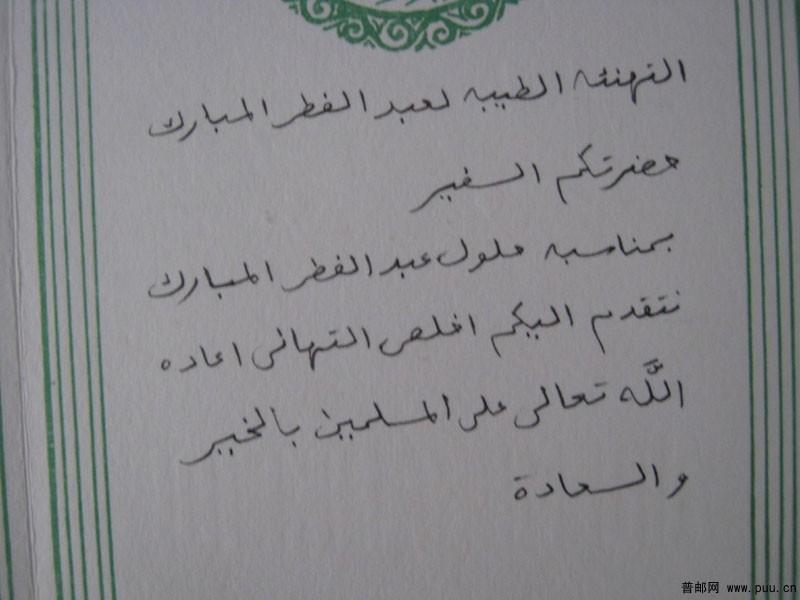 التهنئه الطيبه لعبد الفطر المبارك
حضرتكم السفير
بمناسبه حلول عبد الفطر المبارك
نتقدم اليكم اخلص التهاني اعاده
اللَّه تعالى على المسلمين بالخير
والسعادة
普邮网 www.puu.cn